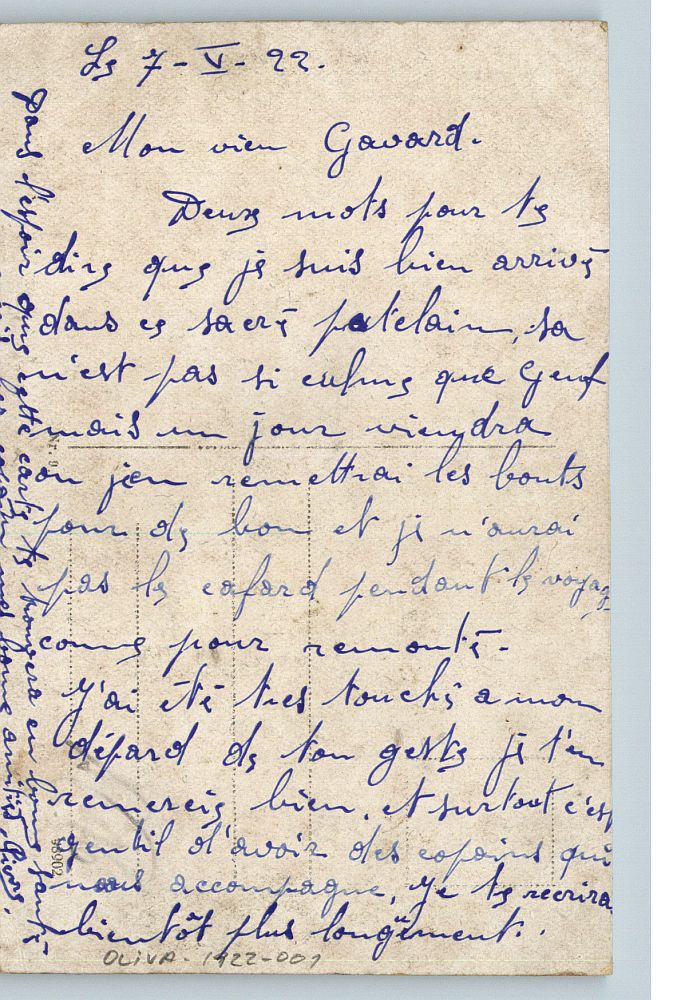 Le 7-V-22.
Mon vieu Gavard.
Deux mots pour te
dire que je suis bien arrivé
dans ce sacré patelain, sa
n'est pas si calme que Genf
mais un jour viendra
ou jen remettrai les bouts
pour de bon et je n'aurai
pas le cafard pendant le voyage
comme pour remonté-
J'ai été tres touché a mon
dépard de ton geste je t'en
remercie bien, et surtout c'est
gentil d'avoir des copains qui
nous accompagne, Je te reecrirai
bientôt plus longüement.
Dans l'espoir que cette carte te trouvera en bonne santé
mes bonne amitiés. Pierre.
Nr. 9
98902
OLIVA-1922-001